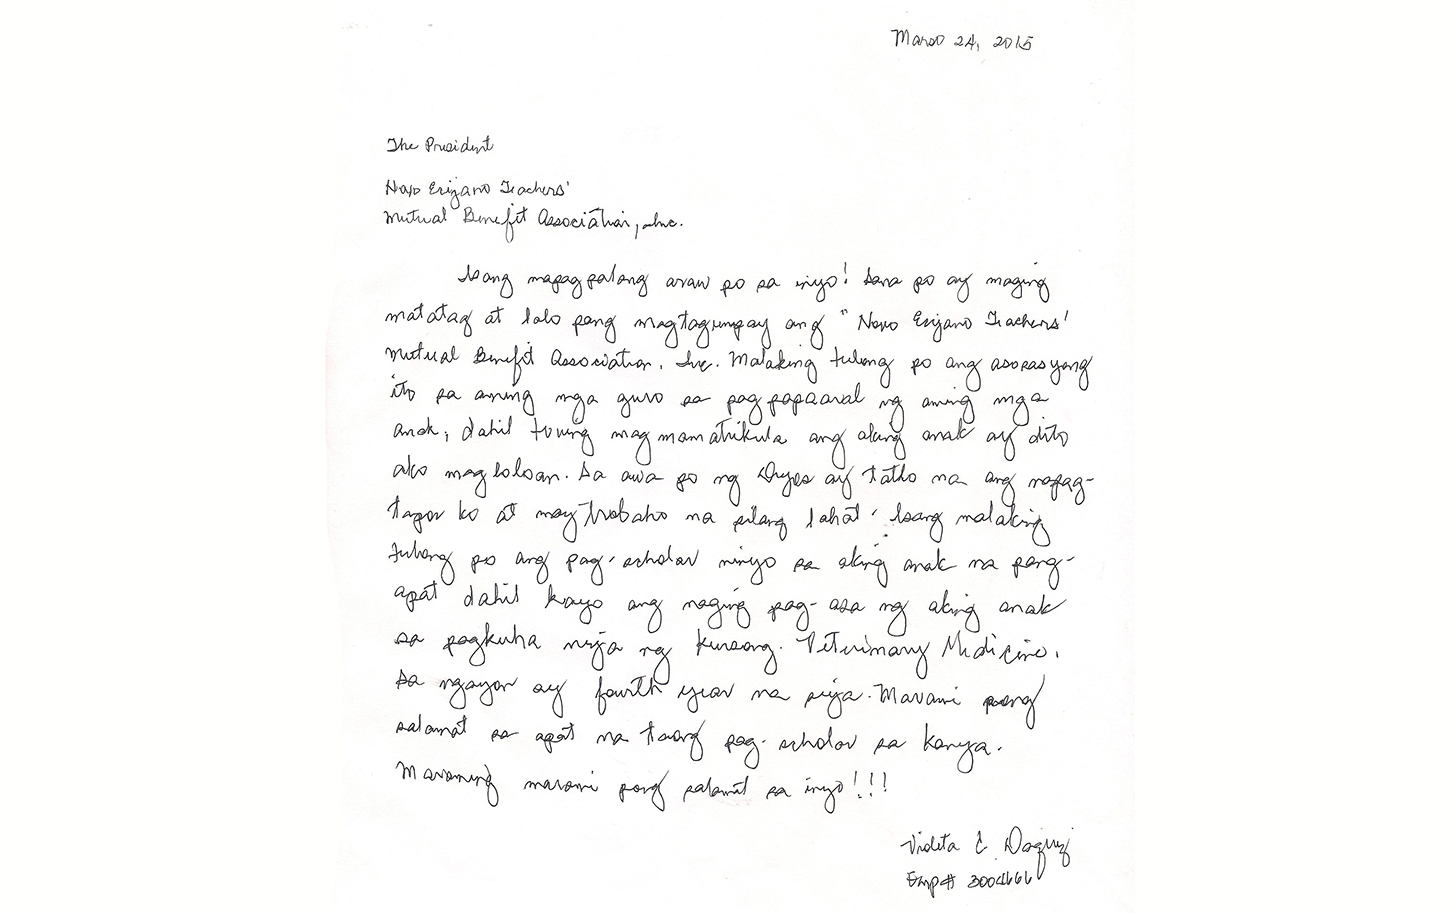 Marso 24, 2015
The President
Novo Ecijano Teachers'
Mutual Benefit Association, Inc.
Isang mapagpalang araw po sa inyo! Sana po ay maging
matatag at lalo pang magtagumpay ang "Novo Ecijano Teachers'
Mutual Benefit Association, Inc. Malaking tulong po ang asosasyong
ito sa aming mga guro sa pagpapaaral ng aming mga
anak, dahil tuwing magmamatrikula ang aking anak ay dito
ako magloloan. Sa awa po ng Diyos ay tatlo na ang napag-
tapos ko at may trabaho na silang lahat. Isang malaking
tulong po ang pag-scholar ninyo sa aking anak na pang-
apat dahil kayo ang naging pag-asa ng aking anak
sa pagkuha niya ng kursong Veterinary Medicine.
Sa ngayon ay fourth year na siya. Marami pong
salamat sa apat na taong pag-scholar sa kanya.
Maraming marami pong salamat sa inyo!!!
Violeta C.
Emp# 3004666